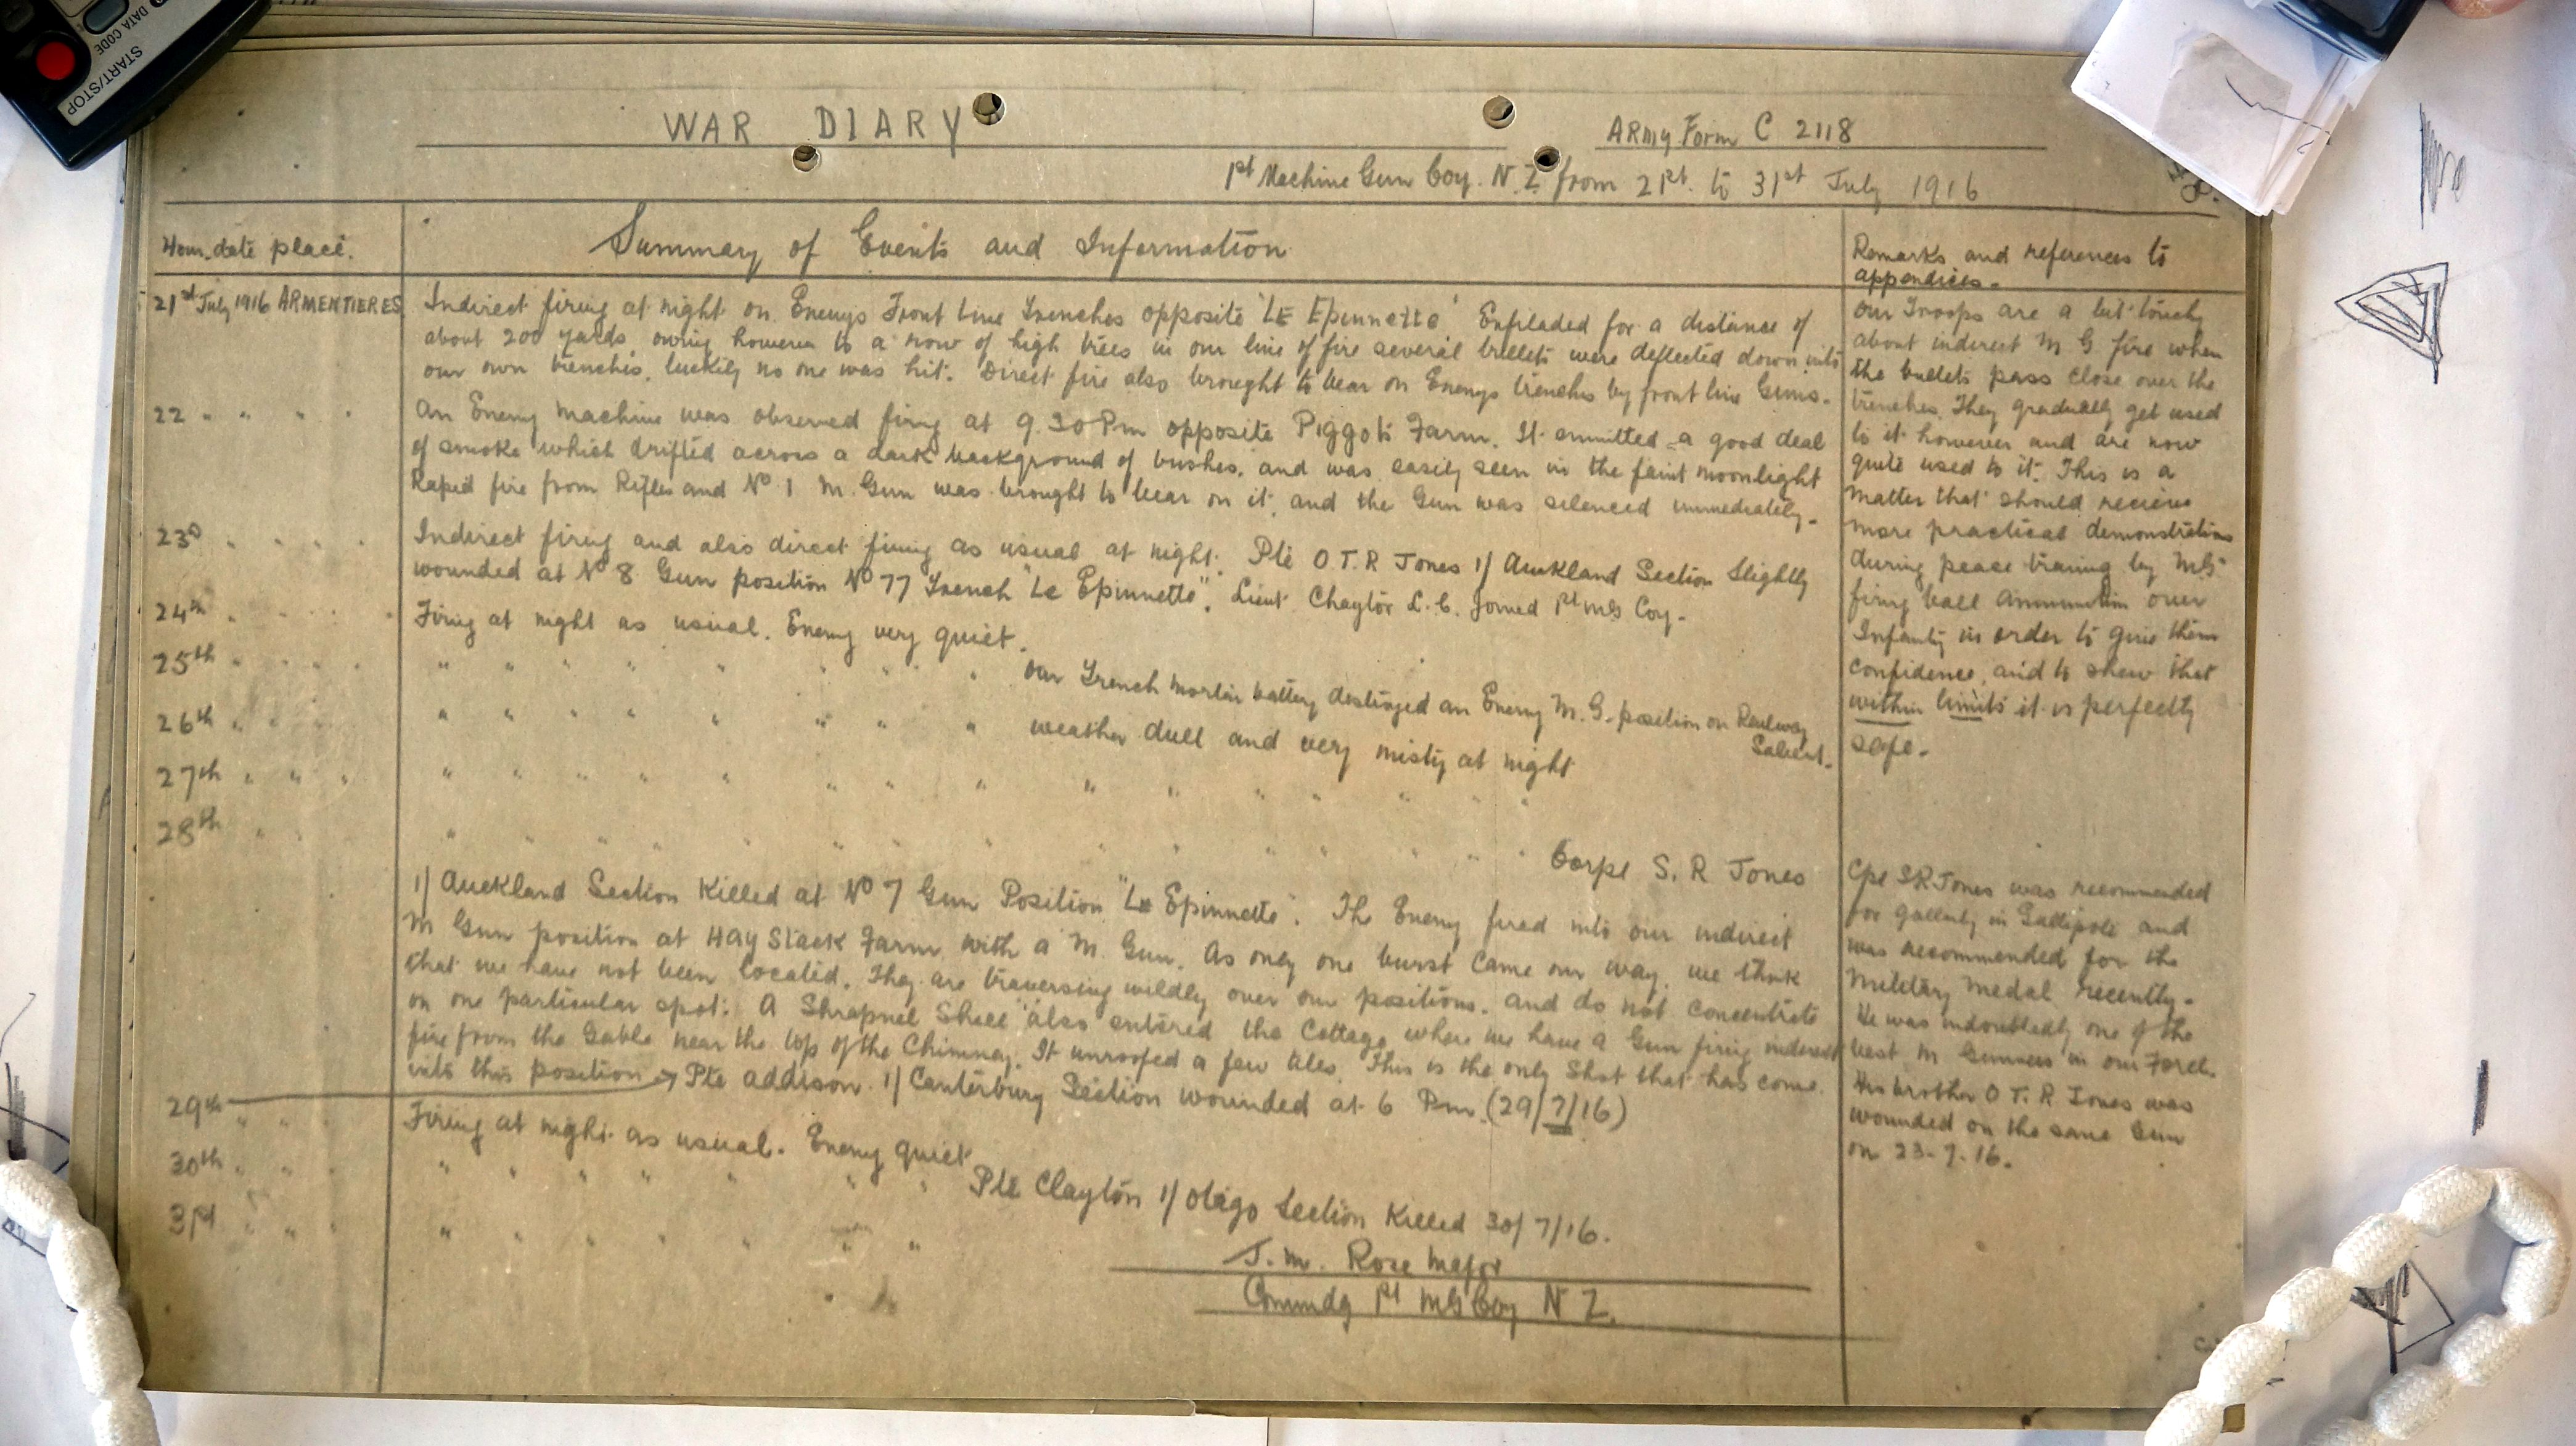 DATA CODE
START/STOP
WAR DIARY
Army Form C 2118
1st Machine Gun Coy. N.Z from 21st. to 31st July 1916
Hour, date place.
Summary of Events and Information
Remarks and references to
appendices.
21st July 1916 ARMENTIERES
Indirect firing at night on Enemys Front Line Trenches opposite "LE Epinnette" Enfiladed for a distance of
about 200 yards, owing however to a row of high trees in our line of fire several bullets were deflected down into
our own trenches, luckily no one was hit. Direct fire also brought to bear on Enemys trenches by front line Guns.
22 " " " "
An Enemy machine was observed firing at 9.30 Pm opposite Piggots Farm. It emmitted a good deal
of smoke which drifted across a dark background of bushes, and was easily seen in the faint moonlight
Rapid fire from Rifles and No 1 M. Gun was brought to bear on it, and the Gun was silenced immediately.
23D " " " "
Indirect firing and also direct firing as usual at night. Pte O.T.R Jones 1/ Auckland Section Slightly
wounded at No 8 Gun position No 77 Trench "Le Epinnette". Lieut Chaytor L.C. Joined 1st MG Coy.
24th " " " "
Firing at night as usual. Enemy very quiet.
25th " " " "
" " " " " " " " Our Trench Mortar battery destroyed an Enemy M.G. position on Railway
Salient.
26th " " "
" " " " " " " " weather dull and very misty at night
27th " " "
" " " " " " " " " " " " " " "
28th " "
" " " " " " " " " " " " " " " Corpl S.R Jones
1/ Auckland Section Killed at No 7 Gun Position "Le Epinnette". The Enemy fired into our indirect
M Gun position at Hay Stack Farm with a M. Gun. As only one burst came our way, we think
that we have not been located. They are traversing wildly over our positions, and do not concentrate
on one particular spot. A Shrapnel Shell also entered the Cottage where we have a Gun firing indirect
fire from the Gable near the top of the Chimney. It unroofed a few tiles. This is the only Shot that has come
into this position → Pte Addison 1/ Canterbury Section wounded at 6 Pm (29/7/16)
29th " " "
Firing at night as usual. Enemy quiet
30th " " "
" " " " " " " Pte Clayton 1/ Otago Section Killed 30/7/16.
31st " " "
" " " " " " "
J.M. Rose Major
Commdg 1st MG Coy N Z.
Our Troops are a bit touchy
about indirect M G fire when
the bullets pass close over the
trenches. They gradually get used
to it however and are now
quite used to it. This is a
matter that should recieve
more practical demonstration
during peace training by MGs
firing ball Ammunition over
Infantry in order to give them
confidence, and to shew that
within limits it is perfectly
safe.
Cpl SR Jones was recommended
for gallantry in Gallipoli and
was recommended for the
Military Medal recently.
He was undoubtedly one of the
best M Gunners in our Force.
His brother O T.R Jones was
wounded on the same Gun
on 23-7-16.